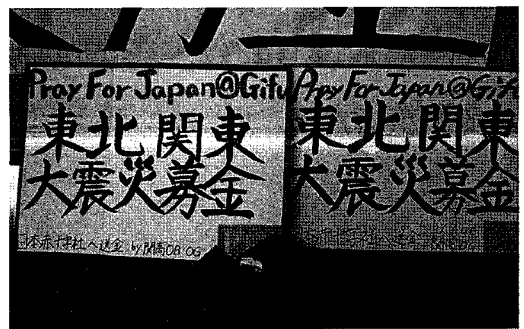 Pray For Japan@Gifu
東北関東
大震災募金
日本赤十字社へ送金 by 関高OB.OG
Pray For Japan@Gifu
東北関東
大震災募金